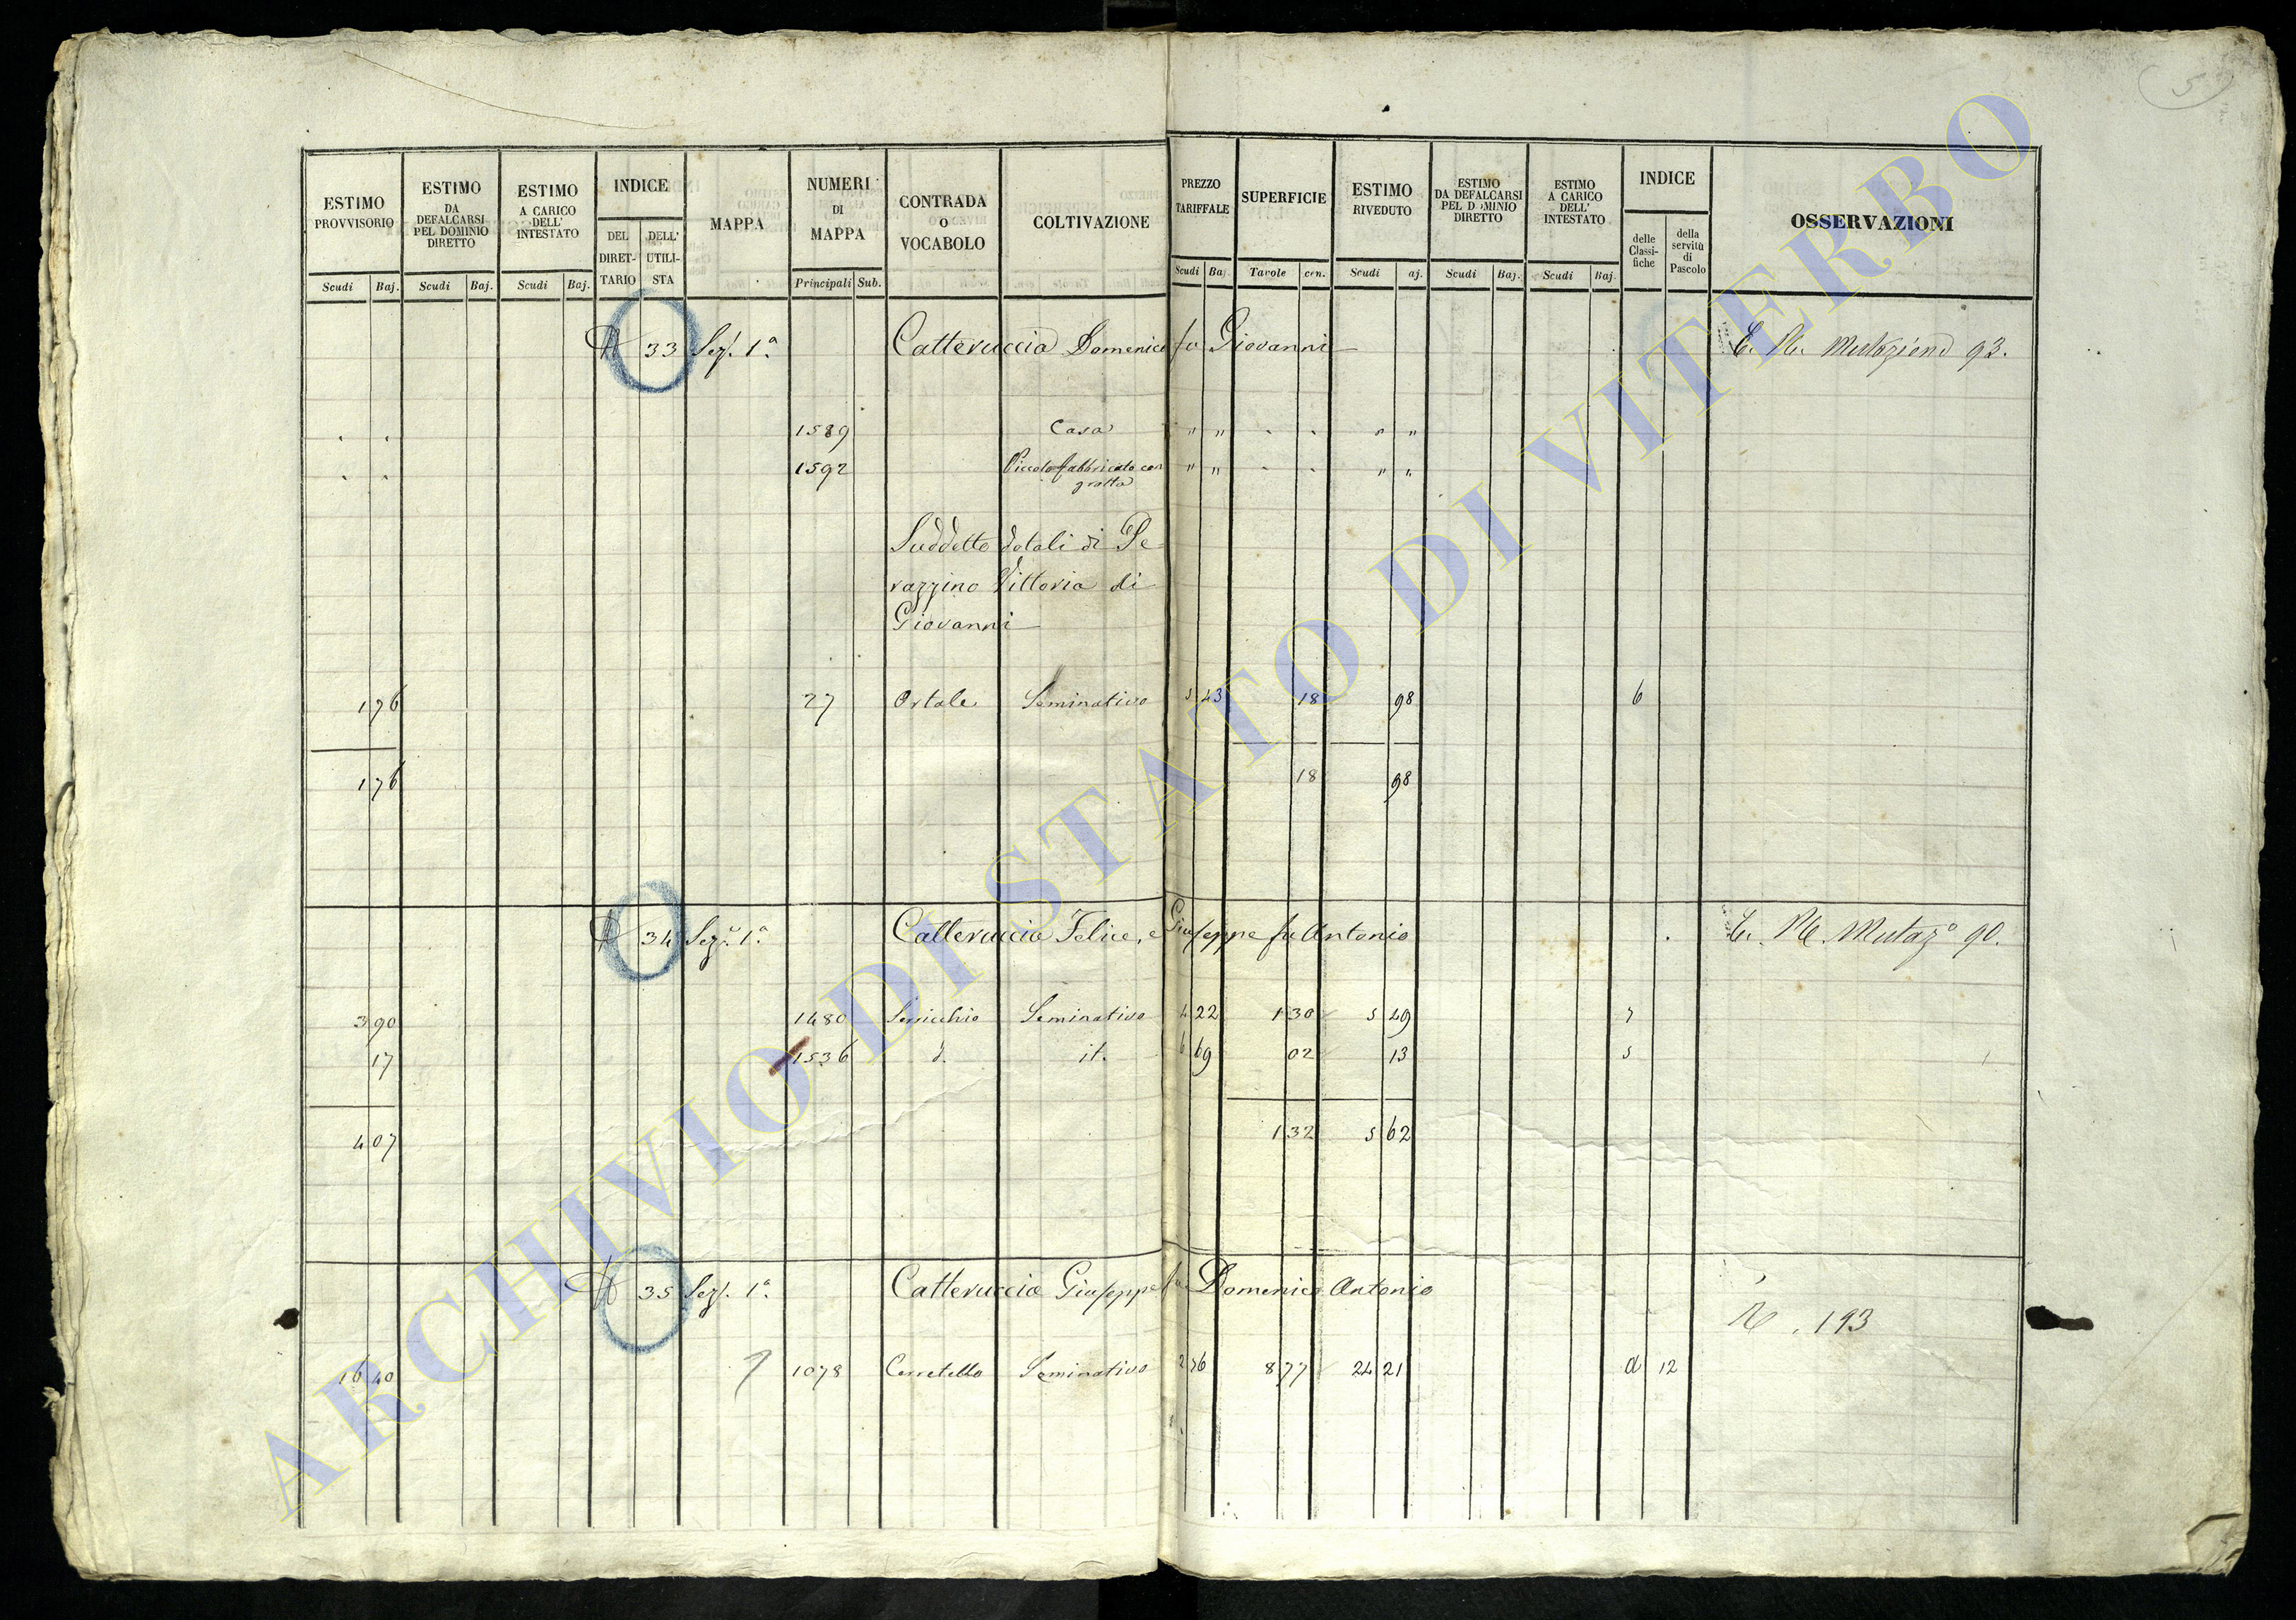 5
ESTIMO PROVVISORIO | ESTIMO DA DEFALCARSI PEL DOMINIO DIRETTO | ESTIMO A CARICO DELL' INTESTATO | INDICE | MAPPA | NUMERI DI MAPPA | CONTRADA O VOCABOLO | COLTIVAZIONE | PREZZO TARIFFALE | SUPERFICIE | ESTIMO RIVEDUTO | ESTIMO DA DEFALCARSI PEL DOMINIO DIRETTO | ESTIMO A CARICO DELL' INTESTATO | INDICE | OSSERVAZIONI
DEL DIRET-TARIO | DELL' UTILI-STA | delle Classi-fiche | della servitù di Pascolo
Scudi | Baj. | Scudi | Baj. | Scudi | Baj. | Principali | Sub. | Scudi | Baj | Tavole | cen. | Scudi | aj. | Scudi | Baj. | Scudi | Baj.
33 Sez. 1ª Catteruccia Domenico fu Giovanni Mutazione 93.
1589 Casa " " " "
1592 Piccolo fabbricato con " " " "
grotta
Suddetto dotali di Pe
razzino Vittoria di
Giovanni
1 76 27 Ortale Seminativo 5 43 18 98 6
1 76 18 98
34 Sez. 1ª Catteruccia Felice, e Giuseppe fu Antonio Mutaz° 90.
3 90 1480 Seminativo 4 22 1 30 5 49 7
17 1536 d. it. 6 69 02 13 5
4 07 1 32 5 62
35 Sez. 1ª Catteruccia Giuseppe fu Domenico Antonio
193
16 40 1078 Cerretello Seminativo 2 76 8 77 24 21 d 12
ARCHIVIO DI STATO DI VITERBO